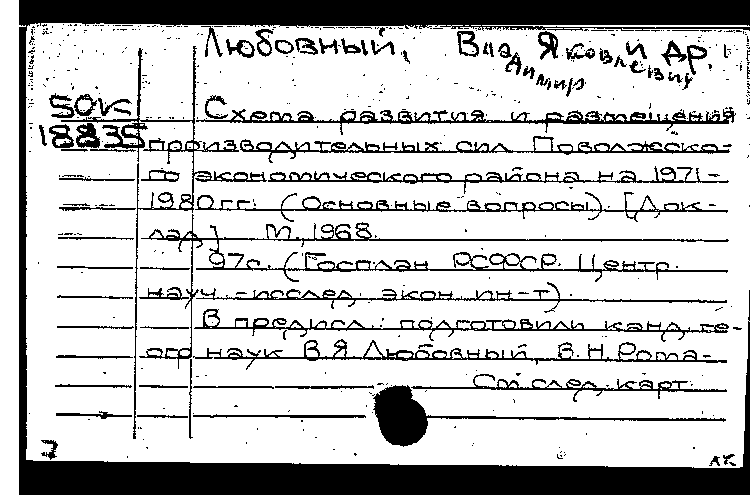 Любовный, Владимир Яковлевич и др.
50К
18835
Схема развития и размещения
производительных сил Поволжско-
го экономического района на 1971-
1980 гг. (Основные вопросы). [Док-
лад]. М., 1968.
97с. (Госплан РСФСР. Центр.
науч.-исслед. экон. ин-т).
В предисл.: подготовили канд. ге-
огр наук В.Я. Любовный, В.Н. Рома-
См. след. карт.
7
АК